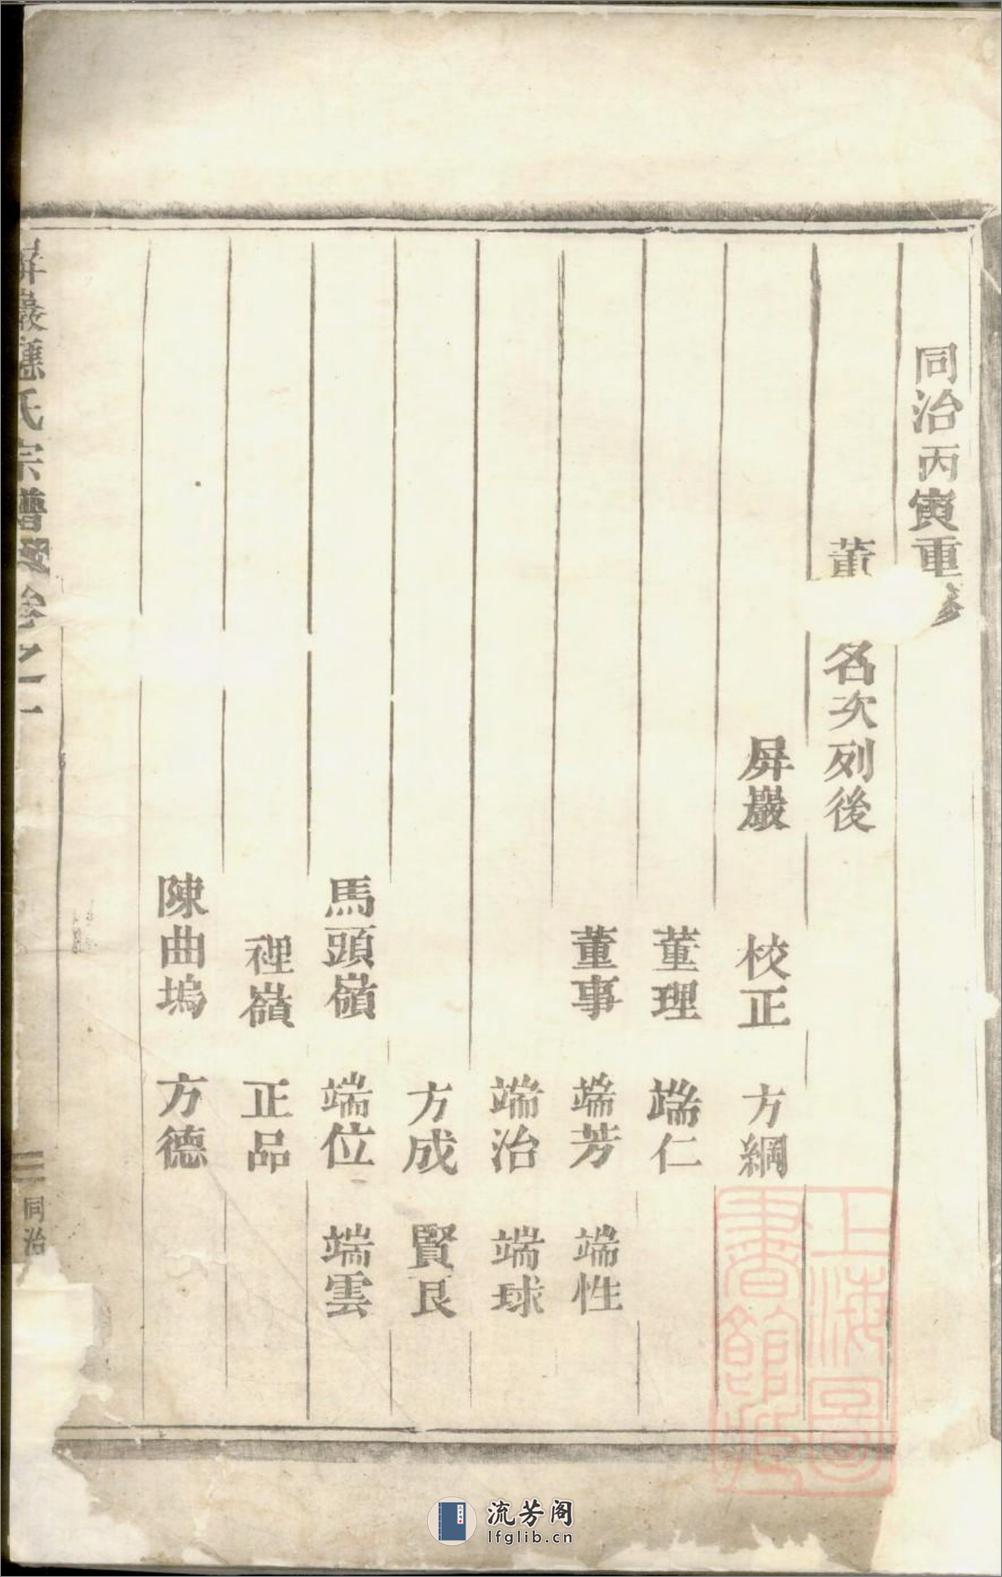 同治丙寅重修
董 名次列後
屏巖 校正 方綱
董理 端仁
董事 端芳 端性
端治 端球
方成 賢良
馬頭嶺 端位 端雲
裡嶺 正品
陳曲塢 方德
屏巖應氏宗譜 卷之一
二 同治
上海圖書館藏
流芳阁
lfglib.cn